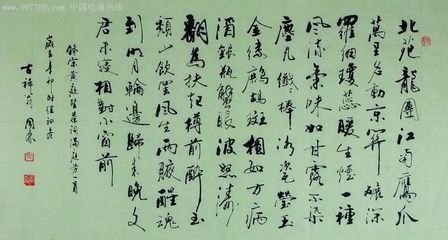 北苑龍團江南鷹爪
萬里名動京關碾深
羅細瓊蕊暖生煙一種
風流氣味如甘露不染
塵凡纖纖捧冰瓷瑩玉
金縷鷓鴣斑相如方病
酒銀瓶蟹眼波怒濤
翻為扶起樽前醉玉
頹山飲罷風生兩腋醒魂
到明月輪邊歸來晚文
君未寢相對小窗前
錄宋黃庭堅茶詞滿庭芳一首
歲在辛卯時值初冬
吉祥
www.997788.com 中国收藏热线